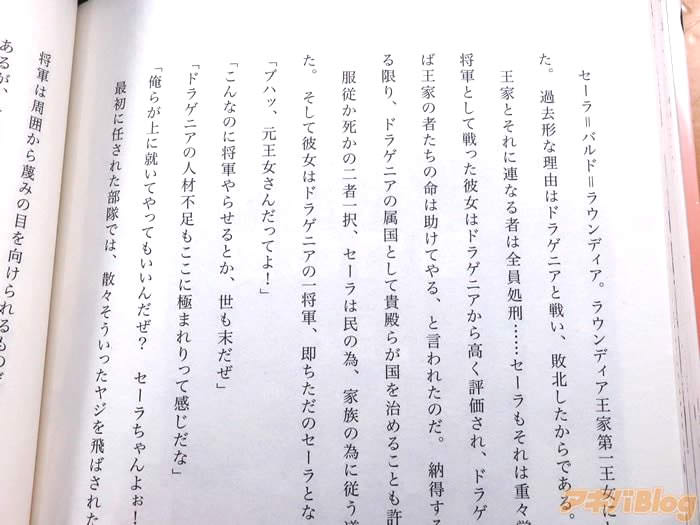 セーラ＝バルド＝ラウンディア。ラウンディア王家第一王女に
た。過去形な理由はドラゲニアと戦い、敗北したからである。
王家とそれに連なる者は全員処刑……セーラもそれは重々
将軍として戦った彼女はドラゲニアから高く評価され、ドラゲ
ば王家の者たちの命は助けてやる、と言われたのだ。納得する
る限り、ドラゲニアの属国として貴殿らが国を治めることも許
服従か死かの二者一択、セーラは民の為、家族の為に従う道
た。そして彼女はドラゲニアの一将軍、即ちただのセーラとな
「ブハッ、元王女さんだってよ！」
「こんなのに将軍やらせるとか、世も末だぜ」
「ドラゲニアの人材不足もここに極まれりって感じだな」
「俺らが上に就いてやってもいいんだぜ？　セーラちゃんよぉ！
最初に任された部隊では、散々そういったヤジを飛ばされた
将軍は周囲から蔑みの目を向けられるもの
あるが、
アキバBlog